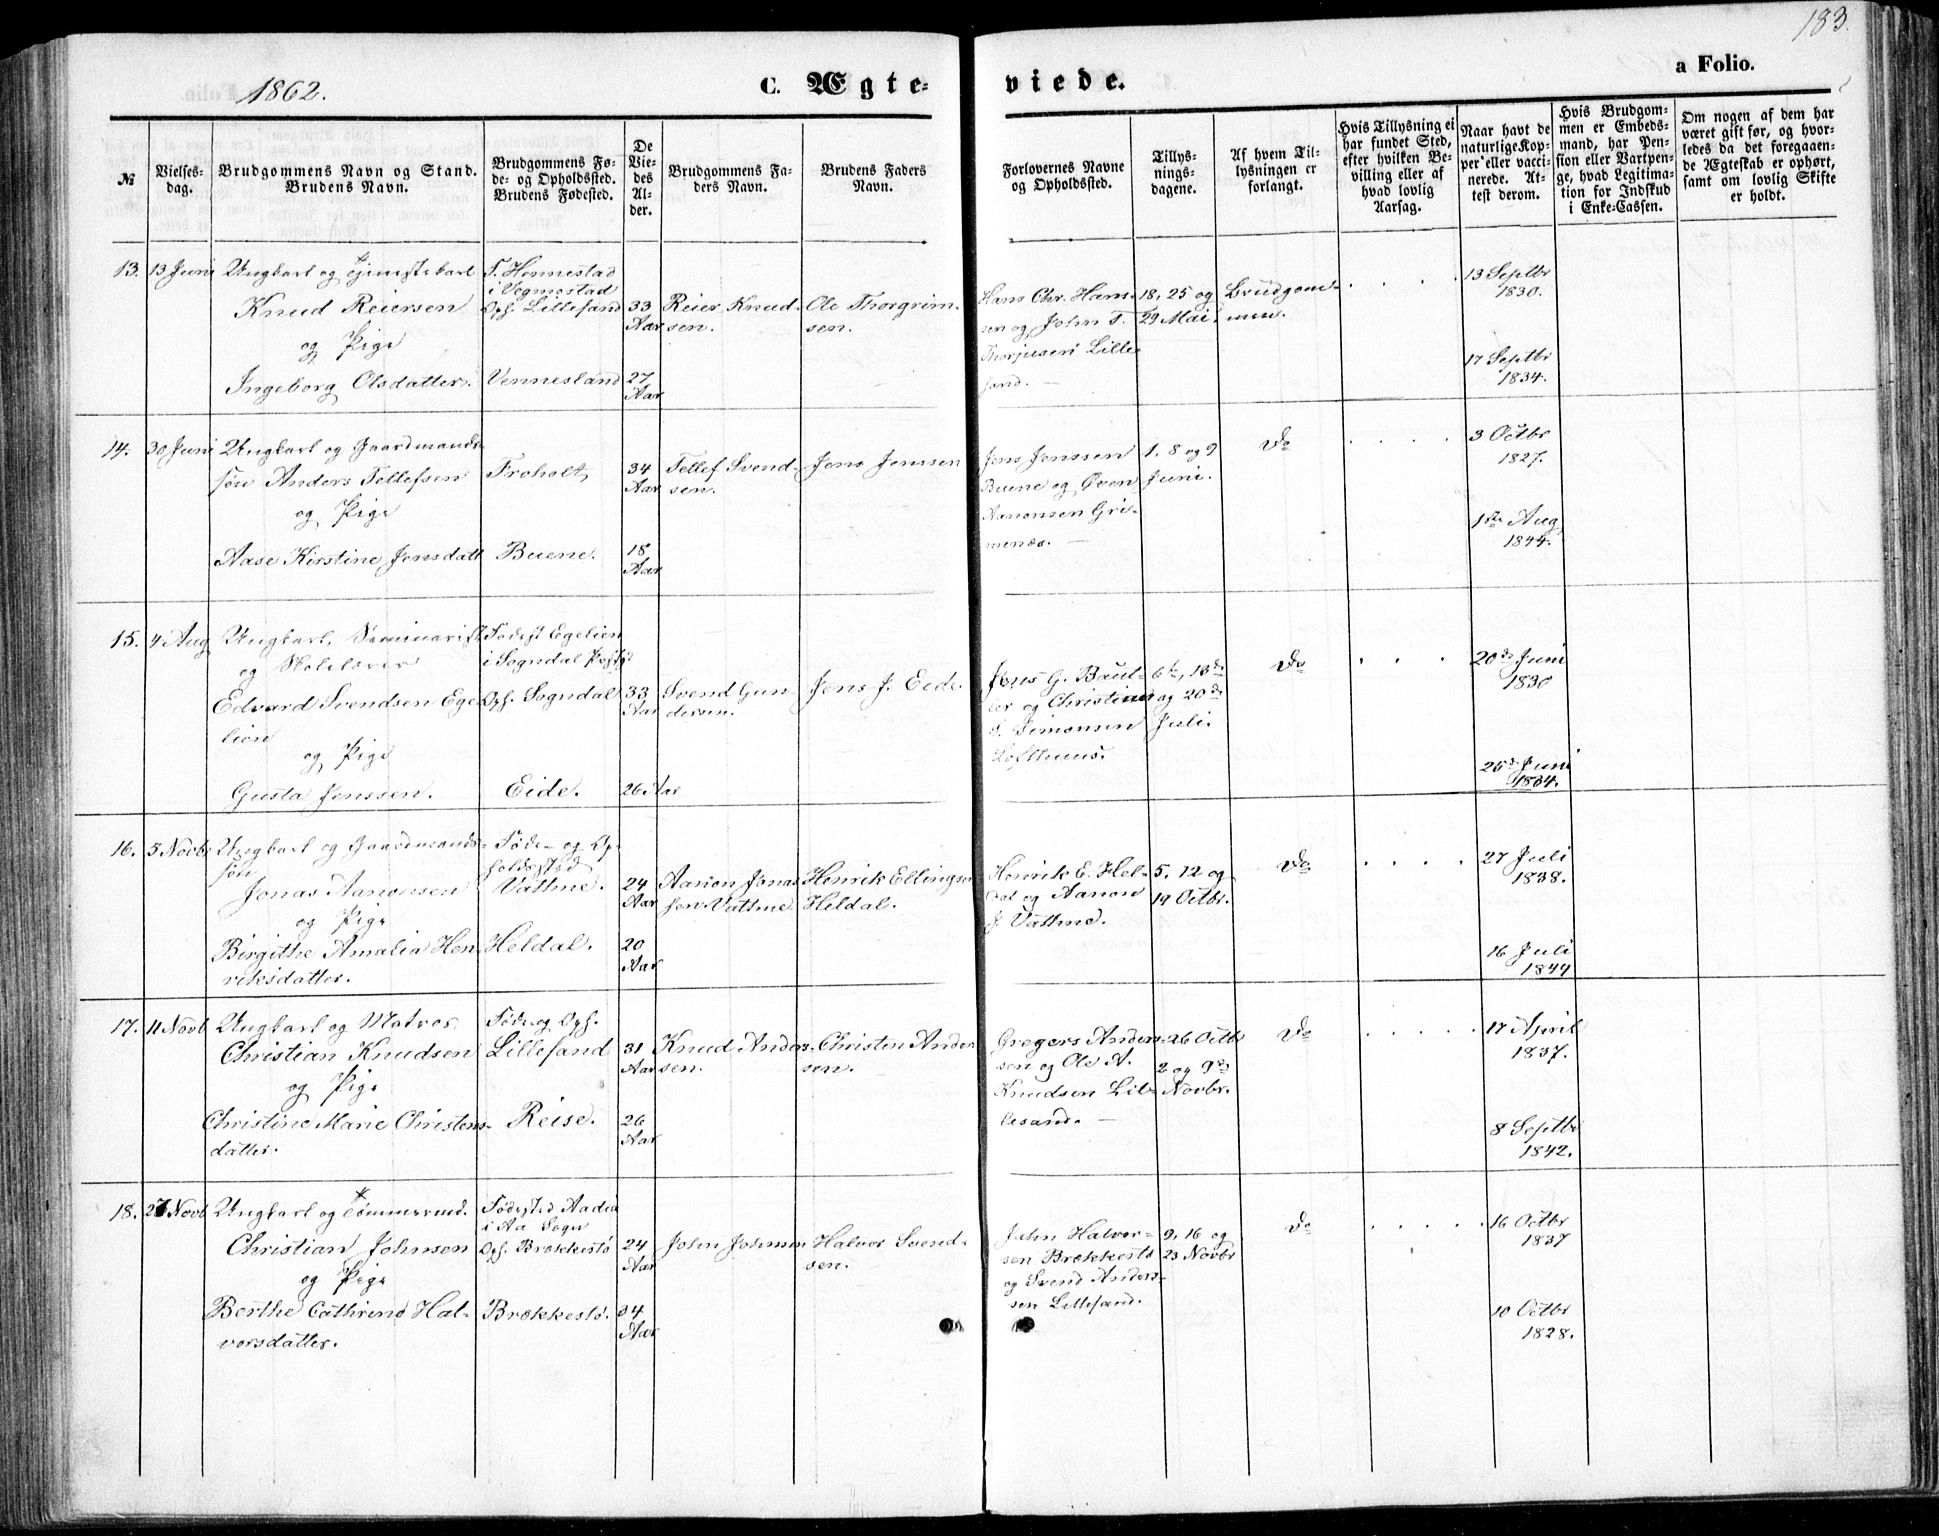 183.
1862.
C. Ægte-
viede.
a Folio.
№
Vielses-
dag.
Brudgommens Navn og Stand.
Brudens Navn.
Brudgommens Fø-
de- og Opholdssted.
Brudens Fødested.
De
Vie-
des
Al-
der.
Brudgommens Fa-
ders Navn.
Brudens Faders
Navn.
Forlovernes Navne
og Opholdssted.
Tillys-
nings-
dagene.
Af hvem Til-
lysningen er
forlangt.
Hvis Tillysning ei
har fundet Sted,
efter hvilken Be-
villing eller af
hvad lovlig
Aarsag.
Naar havt de
naturlige Kop-
per eller vacci-
nerede. At-
test derom.
Hvis Brudgom-
men er Embeds-
mand, har Pen-
sion eller Vartpen-
ge, hvad Legitima-
tion for Indskud
i Enke-Cassen.
Om nogen af dem har
været gift før, og hvor-
ledes da det foregaaen-
de Ægteskab er ophørt,
samt om lovlig Skifte
er holdt.
13.
13 Juni
Ungkarl og Tjenestekarl
Knud Reiersen
og Pige
Ingeborg Olsdatter.
F. Honnestad
i Vegmostad
Oph. Lillesand
Vennesland
33
Aar
27
Aar
Reier Knud-
sen.
Ole Thorgrim-
sen.
Hans Chr. Han-
sen og John T.
Thorjusen Lille-
sand. —
18, 25 og
29 Mai.
Brudgom-
men.
13 Septbr
1830.
17 Septbr
1834.
14.
30 Juni
Ungkarl og Gaardmands-
søn Anders Tellefsen
og Pige
Aase Kirstine Jensdatt
Troholt
Buene.
34
Aar
18
Aar
Tellef Svend-
sen.
Jens Jenssen
Jens Jenssen
Buene og Øven
Aanonsen Gri-
menes. —
1, 8 og 9
Juni.
Do
3 Octbr
1827.
1ste Aug
1844.
15.
4 Aug
Ungkarl, Seminarist
og Skolelærer
Edvard Svendsen Ege-
lien
og Pige
Gusta Jenssen.
Fødest Egelien
i Sogndal Præstgd
Oph. Sogndal
Eide.
33
Aar
26 Aar
Svend Gun-
dersen.
Jens J. Eide.
Jens G. Baut-
ler og Christian
S. Simonsen
Lofthuus.
6te, 13de
og 20de
Juli.
Do
20de Juni
1830
25de Juni
1834.
16.
5 Novb
Ungkarl og Gaardmands-
søn
Jonas Aanonsen
og Pige
Birgithe Amalia Hen-
riksdatter.
Føde- og Op-
holdssted
Vathne.
Heldal.
24
Aar
20
Aar
Aanon Jonas-
sen Vathne
Henrik Ellingsen
Heldal.
Henrik E. Hel-
dal og Aanon
J. Vathne.
5, 12 og
19 Octbr.
Do
27 Juli
1838.
16 Juli
1844
17.
11 Novb
Ungkarl og Matros
Christian Knudsen
og Pige
Christine Marie Christens-
datter.
Føde og Oph.
Lillesand
Reise.
31
Aar
26
Aar
Knud Ander-
sen.
Christen Ander-
sen.
Gregers Anders-
sen og Ole A.
Knudsen Lil-
lesand. —
26 Octbr
2 og 9de
Novbr.
Do
17 April
1837.
8 Septbr
1842.
18.
27 Novb
Ungkarl og Tømmermd.
Christian Johnsen
og Pige
Berthe Cathrine Hal-
vorsdatter.
Fødested Aadia
i Aa Sogn
Oph. Brækkestø
Brækkestø.
24
Aar
34
Aar
John Johnsen
Halvor Svend-
sen.
John Halvor-
sen Brækkestø
og Svend Anders-
sen Lillesand.
9, 16 og
23 Novbr
Do
16 Octbr
1837
10 Octbr
1828.